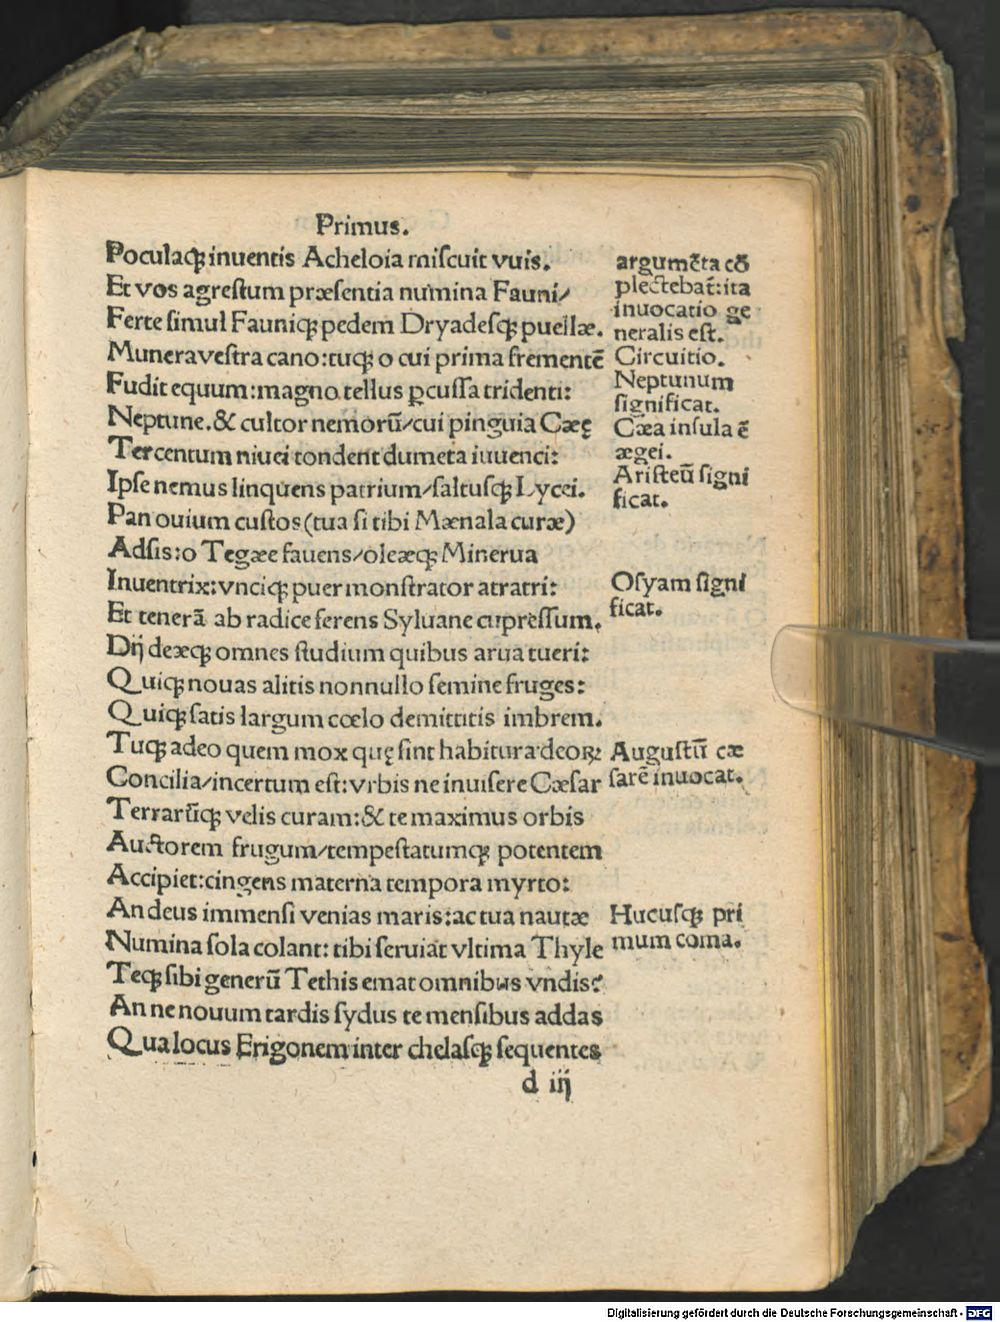 Primus.
Poculaqꝫ inuentis Acheloia miſcuit vuis.
Et vos agreſtum præſentia numina Fauni/
Ferte ſimul Fauniqꝫ pedem Dryadeſqꝫ puellæ.
Munera veſtra cano: tuqꝫ o cui prima frementē
Fudit equum: magno tellus ꝑcuſſa tridenti:
Neptune. & cultor nemorū/cui pinguia Cæę
Tercentum niuei tondent dumeta iuuenci:
Ipſe nemus linquens patrium/ſaltuſqꝫ Lycei.
Pan ouium cuſtos (tua ſi tibi Mænala curæ)
Adſis: o Tegæe fauens/oleæqꝫ Minerua
Inuentrix: vnciqꝫ puer monſtrator atratri:
Et tenerā ab radice ferens Syluane cupreſſum.
Dij deæqꝫ omnes ſtudium quibus arua tueri:
Quiqꝫ nouas alitis nonnullo ſemine fruges:
Quiqꝫ ſatis largum cœlo demittitis imbrem.
Tuqꝫ adeo quem mox quę ſint habitura deoꝝ:
Concilia/incertum eſt: vrbis ne inuiſere Cæſar
Terrarūqꝫ velis curam: & te maximus orbis
Auctorem frugum/tempeſtatumqꝫ potentem
Accipiet: cingens materna tempora myrto:
An deus immenſi venias maris: ac tua nautæ
Numina ſola colant: tibi ſeruiat vltima Thyle
Teqꝫ ſibi generū Tethis emat omnibus vndis?
An ne nouum tardis ſydus te menſibus addas
Qua locus Erigonem inter chelaſqꝫ ſequentes
d iij
argumēta cō
plectebat̄: ita
inuocatio ge
neralis eſt.
Circuitio.
Neptunum
ſignificat.
Cæa inſula ē
ægei.
Ariſteū ſigni
ficat.
Oſyam ſigni
ficat.
Auguſtū cæ
ſarē inuocat.
Hucuſqꝫ pri
mum coma.
Digitalisierung gefördert durch die Deutsche Forschungsgemeinschaft - DFG